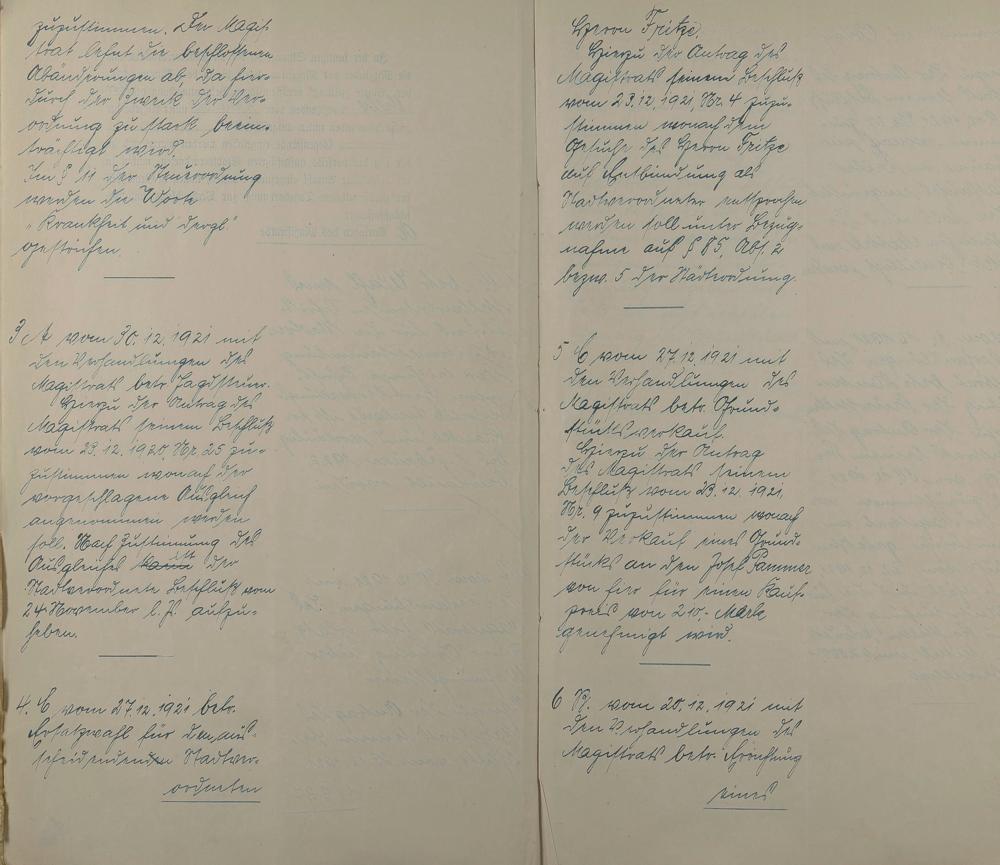 zuzustimmen. Der Magis-
trat lehnt die beschlossenen
Abänderungen ab. Da hier-
durch der Zweck der Ver-
ordnung zu stark beein-
trächtigt wird.
Im § 11 der Steuerordnung
werden die Worte
"Krankheit und dergl."
gestrichen.
3 A vom 30.12.1921 mit
den Verhandlungen des
Magistrats betr. Jagdsteuer.
Hierzu der Antrag des
Magistrats seinem Beschluß
vom 23.12.1920, Nr. 25 zu-
zustimmen wonach der
vorgeschlagene Ausgleich
angenommen werden
soll. Nach Zustimmung des
Ausgleiches ist der
Stadtverordnete Beschluß vom
24 November l. J. aufzu-
heben.
4. C vom 27.12.1921 betr.
Ersatzwahl für den aus-
scheidenden Stadtver-
ordneten
Herrn Fritze.
Hierzu der Antrag des
Magistrats seinem Beschluß
vom 23.12.1921, Nr. 4 zuzu-
stimmen wonach dem
Gesuche des Herrn Fritze
auf Entbindung als
Stadtverordneter entsprochen
werden soll unter Bezug-
nahme auf § 85, Abs. 2
bezw. 5 der Städteordnung.
5 C vom 27.12.1921 mit
den Verhandlungen des
Magistrats betr. Grund-
stücksverkauf.
Hierzu der Antrag
des Magistrats seinem
Beschluß vom 23.12.1921,
Nr. 9 zuzustimmen wonach
der Verkauf eines Grund-
stücks an den Josef Pammer
von hier für einen Kauf-
preis von 210,- Mark
genehmigt wird.
6 vom 20.12.1921 mit
den Verhandlungen des
Magistrats betr. Errichtung
eines